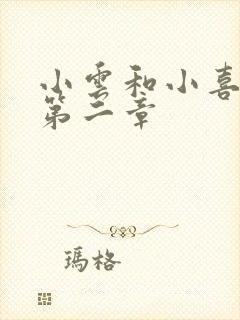 小雲和小喜
第二章
瑪格